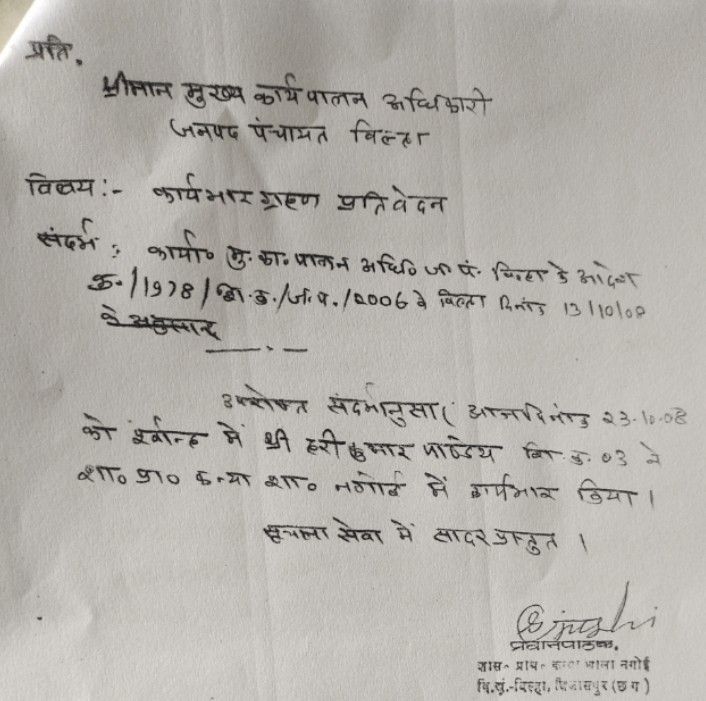 प्रति,
श्रीमान मुख्य कार्यपालन अधिकारी
जनपद पंचायत बिल्हा
विषय :- कार्यभार ग्रहण प्रतिवेदन
संदर्भ : कार्या० मु. का. पालन अधि० ज. पं. बिल्हा के आदेश
क्र. /1978/शि.क./ज.प./2006 बिल्हा दिनांक 13/10/08
के अनुसार
उपरोक्त संदर्भानुसार आज दिनांक 23-10-08
को पूर्वान्ह में श्री हरी कुमार पाण्डेय शि. क. 03 ने
शा० प्रा० कन्या शा० नगोई में कार्यभार लिया।
सूचना सेवा में सादर प्रस्तुत ।
प्रधानपाठक,
शास- प्राथ- कन्या शाला नगोई
वि.खं.-बिल्हा, बिलासपुर (छ ग)